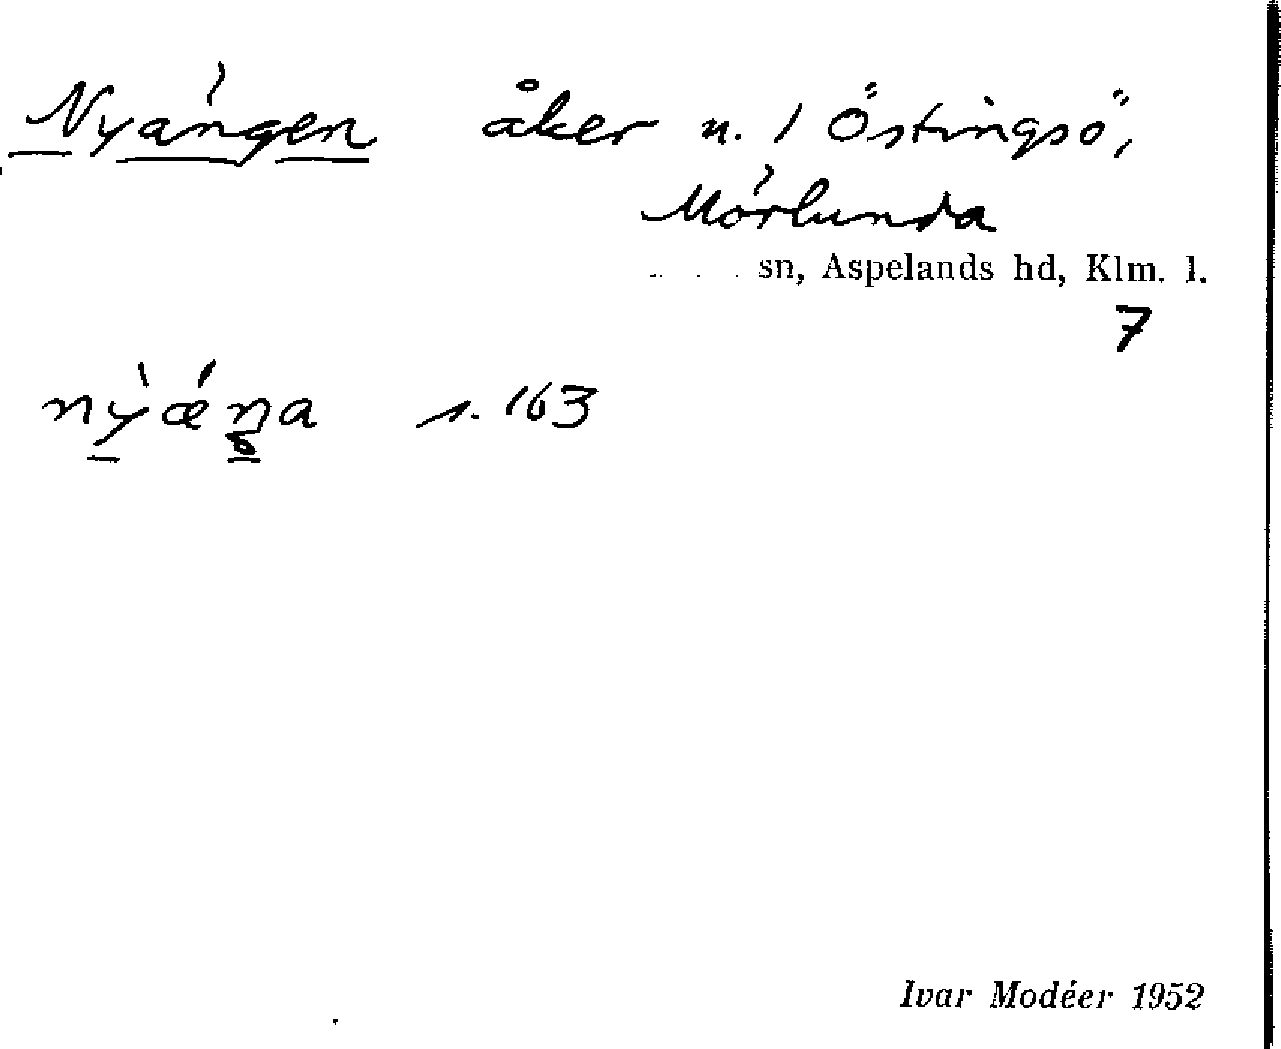 Nyängen åker n. 1 Östingsö,
Mörlunda
sn, Aspelands hd, Klm. l.
7
nỳǽna s. 163
Ivar Modéer 1952